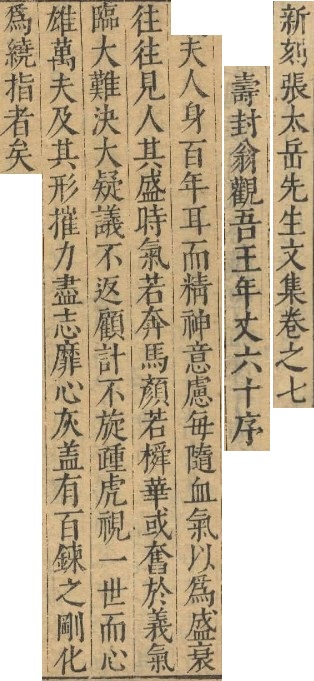 新刻張太岳先生文集卷之七
壽封翁觀吾王年丈六十序
夫人身百年耳而精神意慮每隨血氣以爲盛衰
往往見人其盛時氣若奔馬顏若橓華或奮於義氣
臨大難決大疑議不返顧計不旋踵虎視一世而心
雄萬夫及其形摧力盡志靡心灰盖有百鍊之剛化
爲繞指者矣